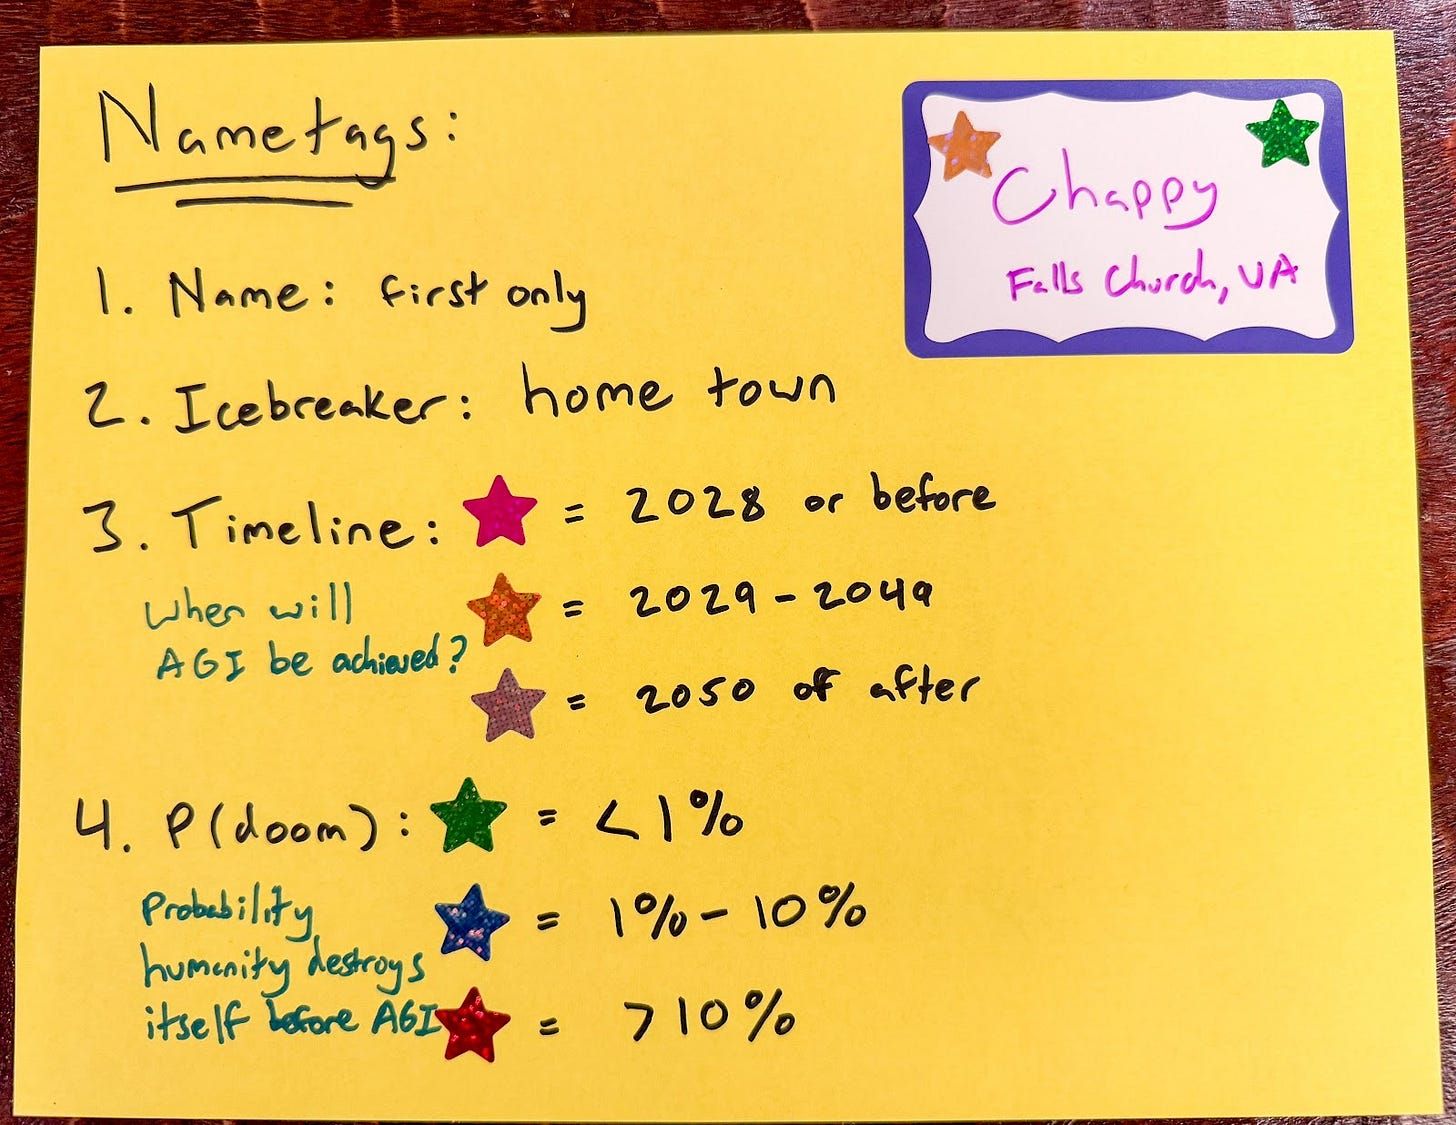 Nametags:
Chappy
Falls Church, VA
1. Name: first only
2. Icebreaker: home town
3. Timeline: = 2028 or before
When will
AGI be achieved?
= 2029-2049
= 2050 of after
4. P(doom): = <1%
Probability
humanity destroys
itself before AGI
= 1%-10%
= >10%